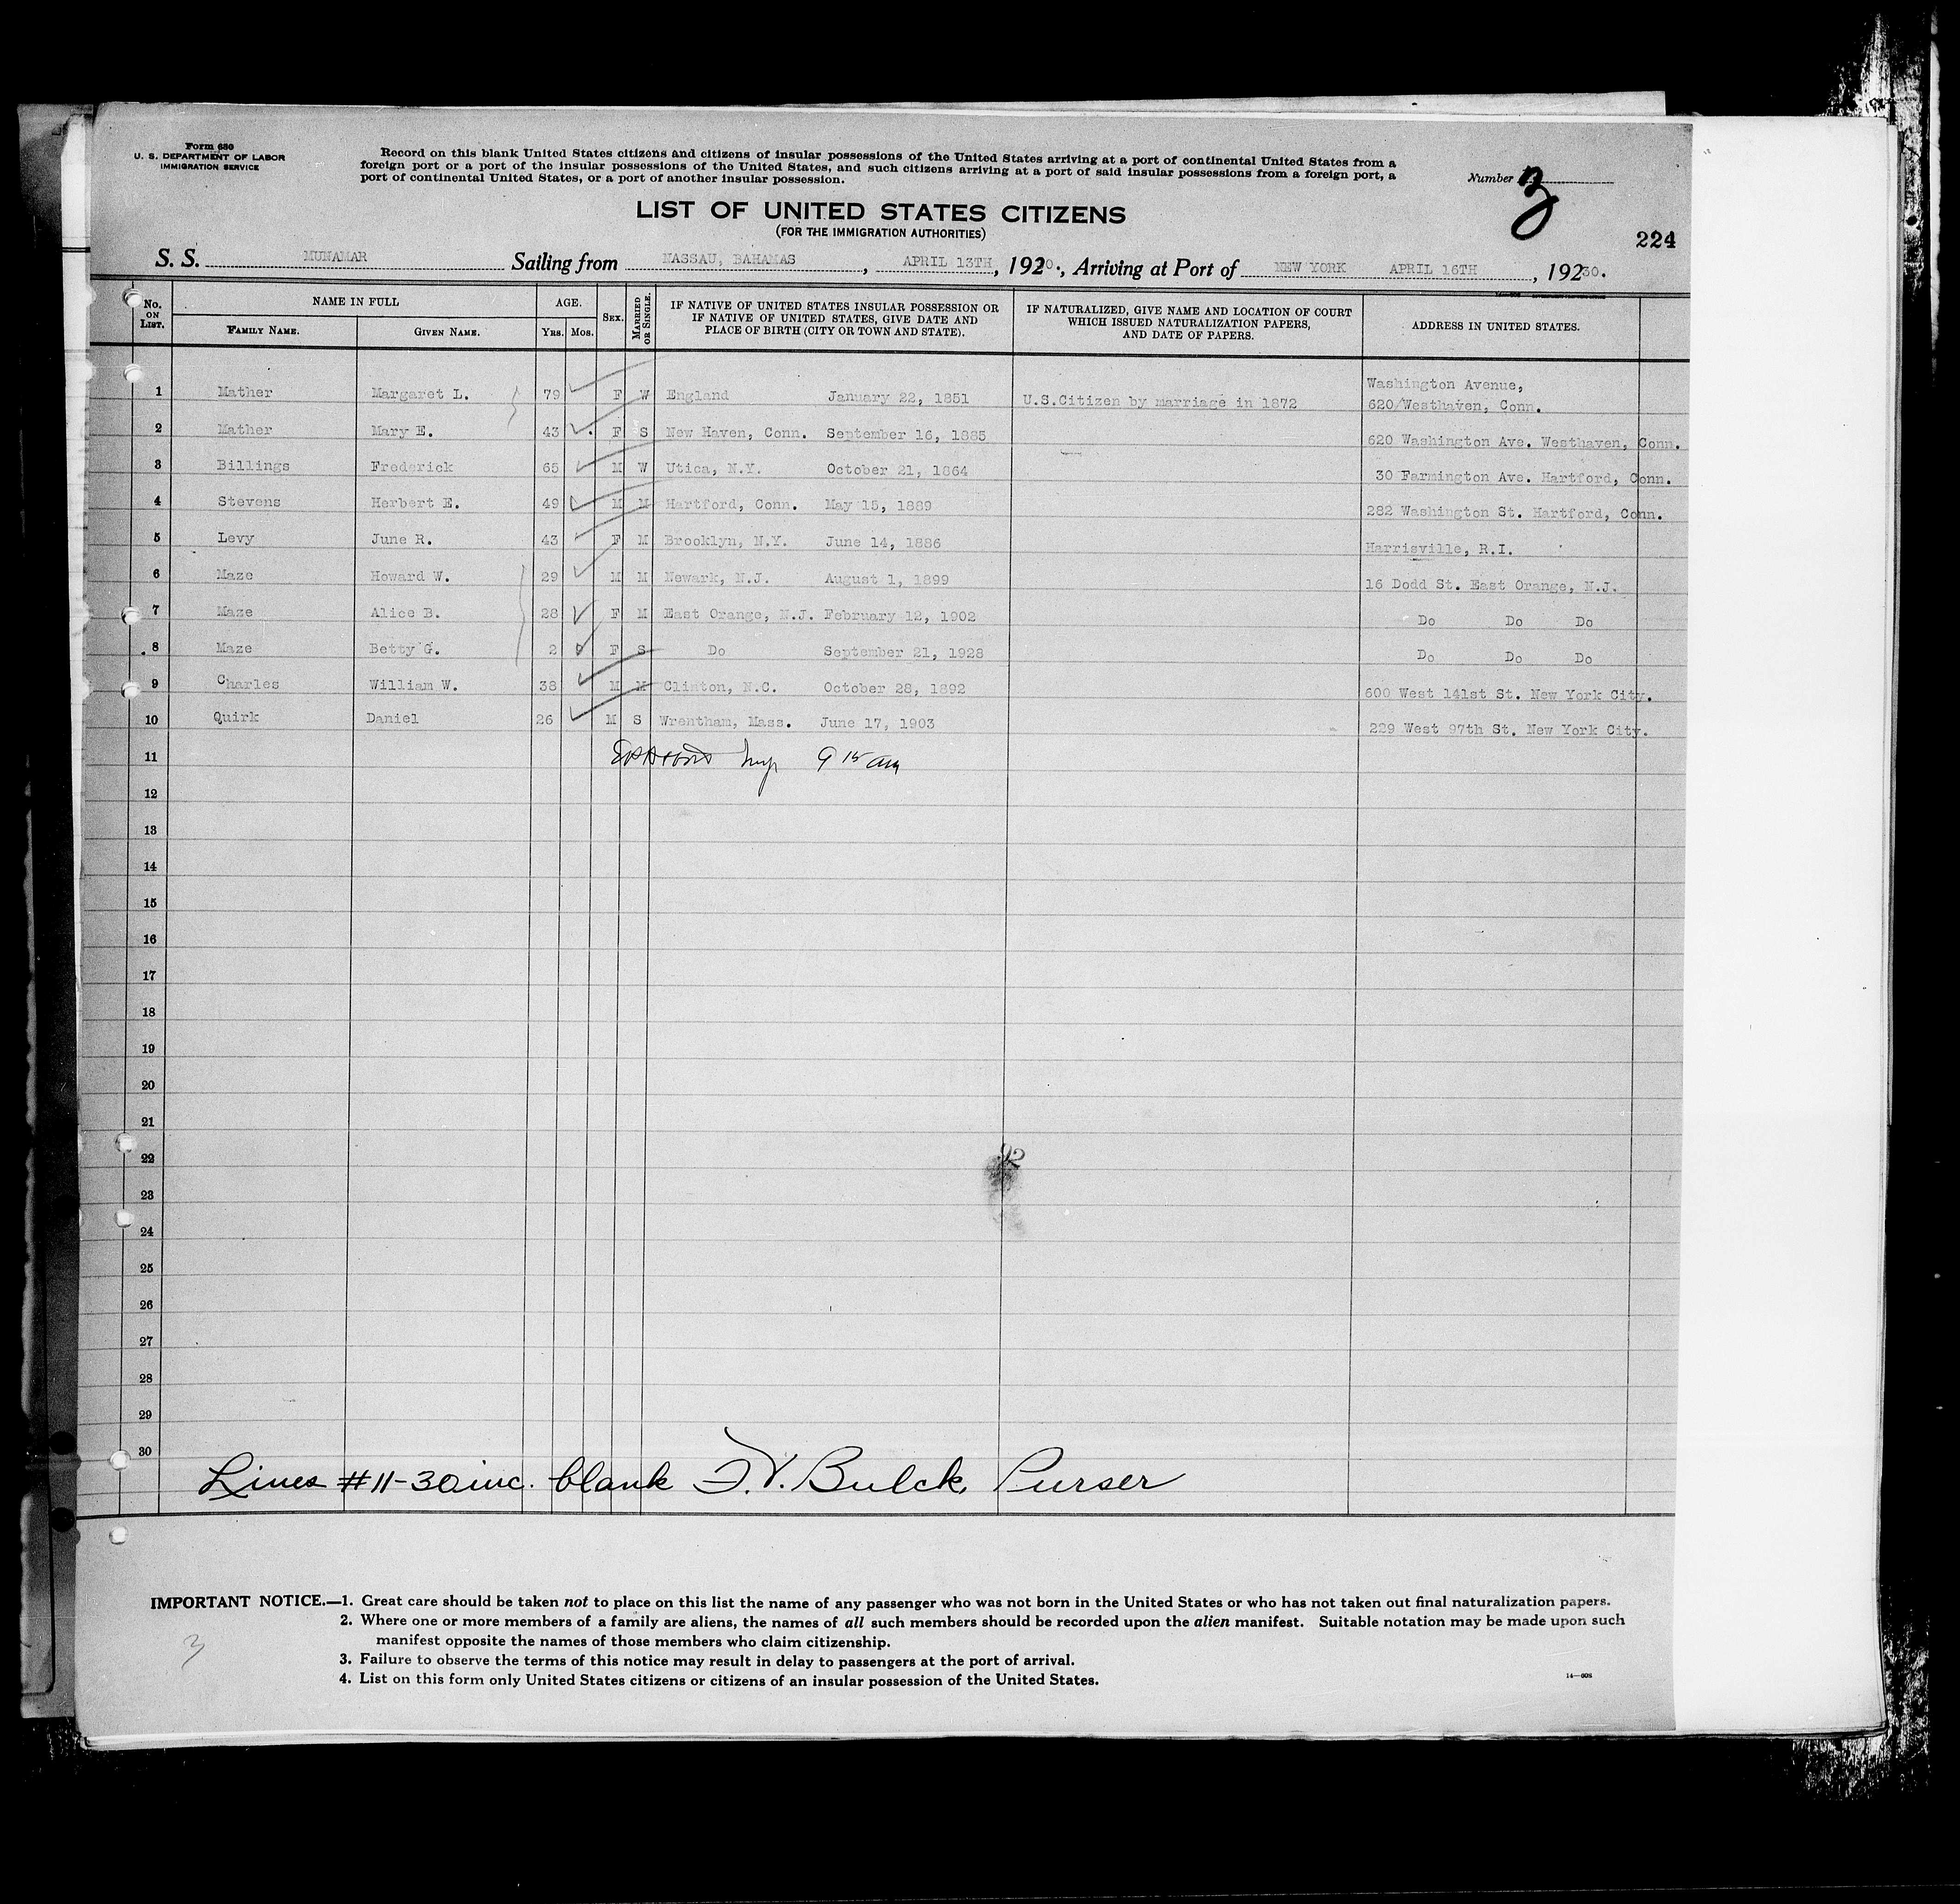 Form 630
U. S. DEPARTMENT OF LABOR
IMMIGRATION SERVICE
Record on this blank United States citizens and citizens of insular possessions of the United States arriving at a port of continental United States from a
foreign port or a port of the insular possessions of the United States, and such citizens arriving at a port of said insular possessions from a foreign port, a
port of continental United States, or a port of another insular possession.
Number 3
LIST OF UNITED STATES CITIZENS
(FOR THE IMMIGRATION AUTHORITIES)
224
S. S. MUNAMAR Sailing from NASSAU, BAHAMAS, APRIL 13TH, 1920., Arriving at Port of NEW YORK APRIL 16TH, 19230.
No. ON LIST. NAME IN FULL FAMILY NAME. GIVEN NAME. AGE. YRS. MOS. SEX. MARRIED OR SINGLE. IF NATIVE OF UNITED STATES INSULAR POSSESSION OR IF NATIVE OF UNITED STATES, GIVE DATE AND PLACE OF BIRTH (CITY OR TOWN AND STATE). IF NATURALIZED, GIVE NAME AND LOCATION OF COURT WHICH ISSUED NATURALIZATION PAPERS, AND DATE OF PAPERS. ADDRESS IN UNITED STATES.
1 Mather Margaret L. 79 F W England January 22, 1851 U.S.Citizen by marriage in 1872 Washington Avenue,
620/Westhaven, Conn.
2 Mather Mary E. 43 F S New Haven, Conn. September 16, 1885 620 Washington Ave. Westhaven, Conn.
3 Billings Frederick 65 M W Utica, N.Y. October 21, 1864 30 Farmington Ave. Hartford, Conn.
4 Stevens Herbert E. 49 M M Hartford, Conn. May 15, 1889 282 Washington St. Hartford, Conn.
5 Levy June R. 43 F M Brooklyn, N.Y. June 14, 1886 Harrisville, R.I.
6 Maze Howard W. 29 M M Newark, N.J. August 1, 1899 16 Dodd St. East Orange, N.J.
7 Maze Alice B. 28 F M East Orange, N.J. February 12, 1902 Do Do Do
8 Maze Betty G. 2 F S Do September 21, 1928 Do Do Do
9 Charles William W. 38 M M Clinton, N.C. October 28, 1892 600 West 141st St. New York City.
10 Quirk Daniel 26 M S Wrentham, Mass. June 17, 1903 229 West 97th St. New York City.
11 9 15 am
12
13
14
15
16
17
18
19
20
21
22
23
24
25
26
27
28
29
30
Lines #11-30 inc. blank F.V. Bulck, Purser
IMPORTANT NOTICE.—1. Great care should be taken not to place on this list the name of any passenger who was not born in the United States or who has not taken out final naturalization papers.
2. Where one or more members of a family are aliens, the names of all such members should be recorded upon the alien manifest. Suitable notation may be made upon such
manifest opposite the names of those members who claim citizenship.
3. Failure to observe the terms of this notice may result in delay to passengers at the port of arrival.
4. List on this form only United States citizens or citizens of an insular possession of the United States.
3
14—608